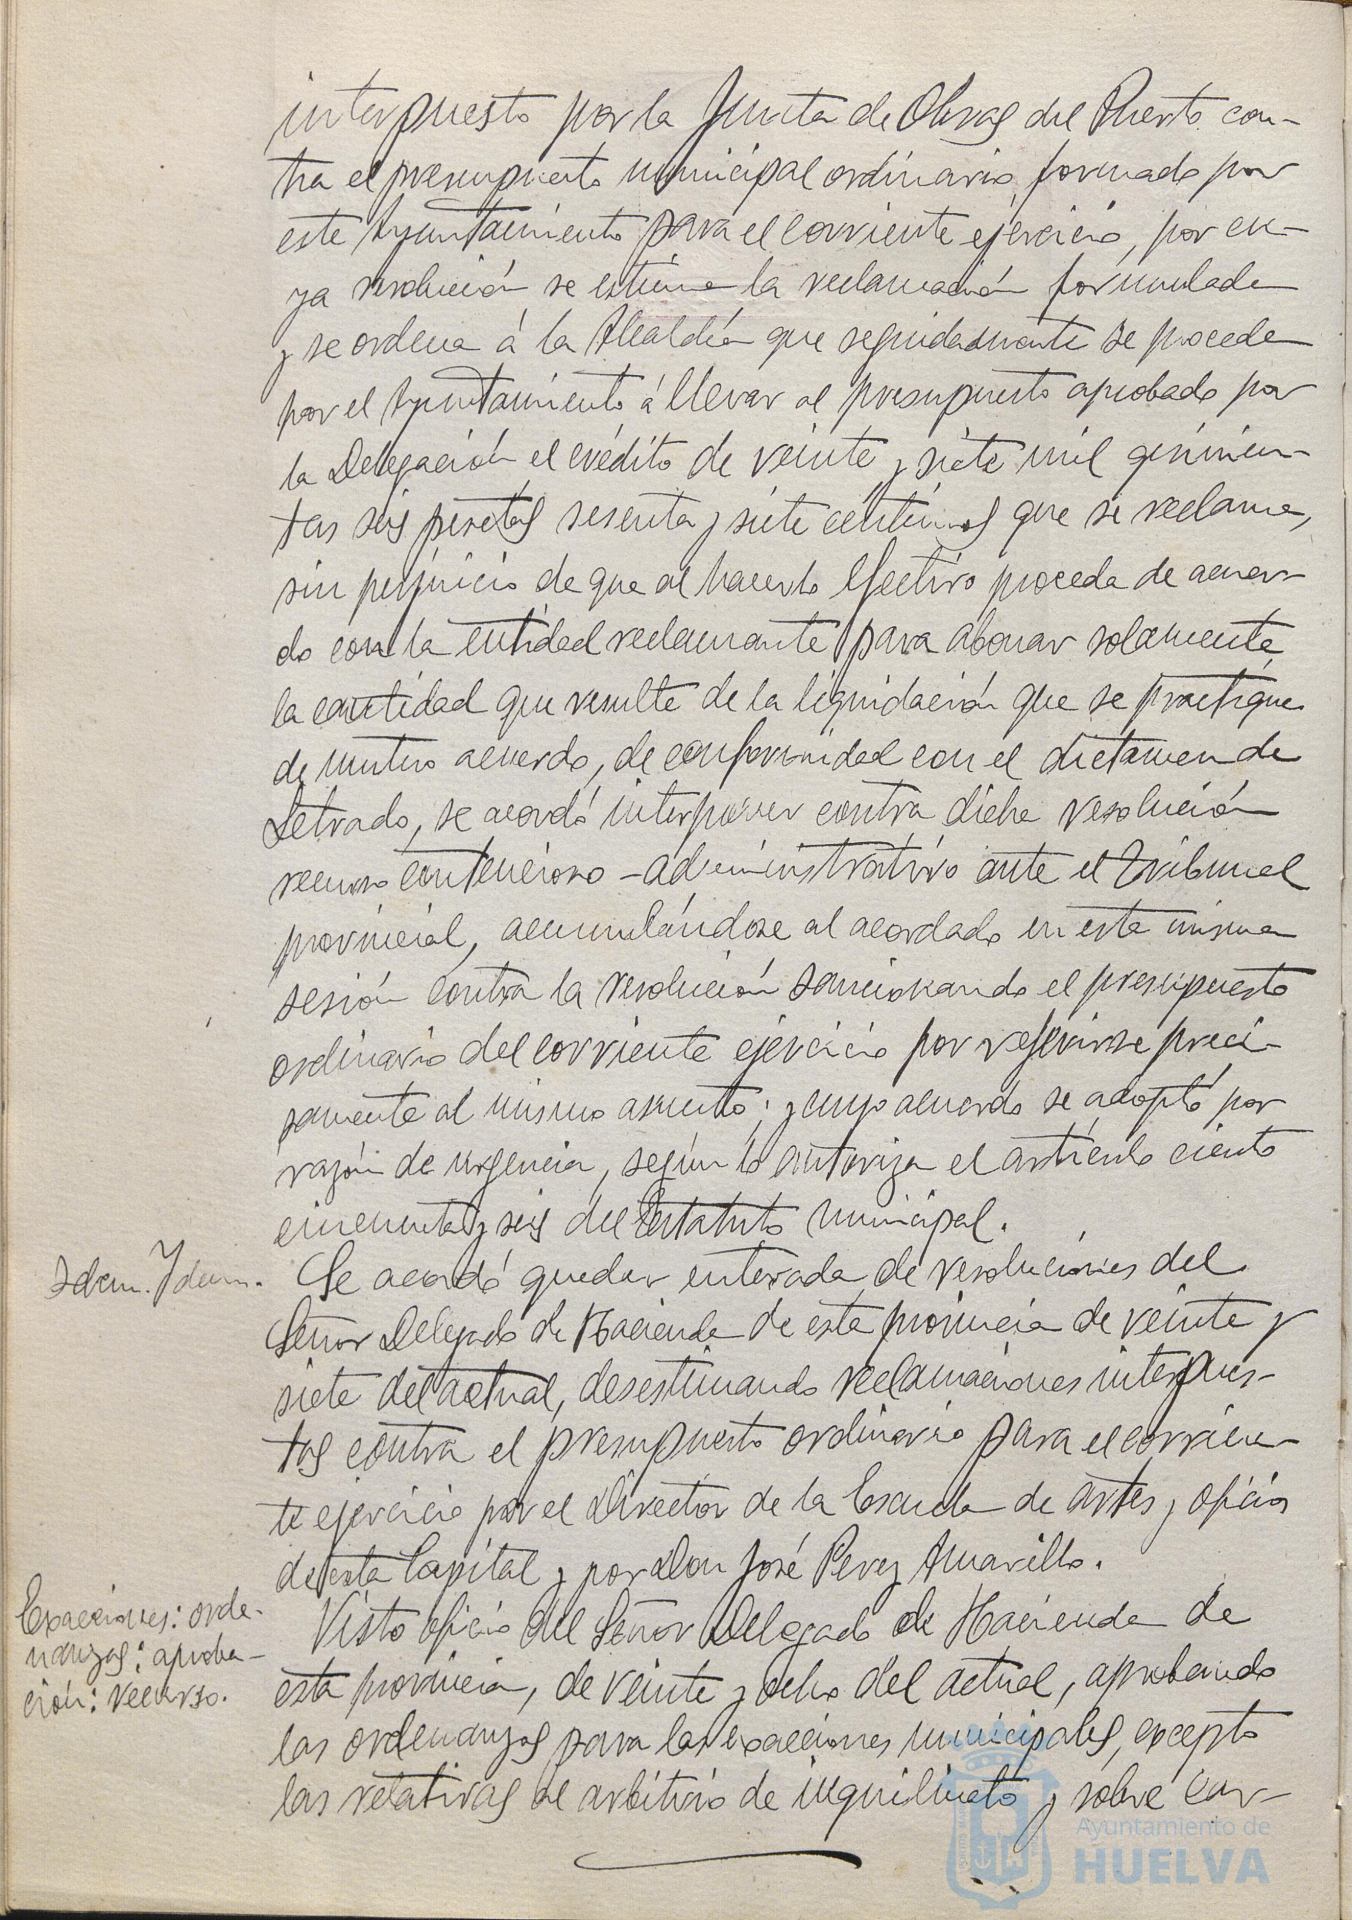 interpuesto por la Junta de Obras del Puerto con-
tra el presupuesto municipal ordinario formado por
este Ayuntamiento para el corriente ejercicio, por cu-
ya resolución se estima la reclamación formulada
y se ordena á la Alcaldía que seguidamente se proceda
por el Ayuntamiento á llevar al presupuesto aprobado por
la Delegación el crédito de veinte y siete mil quinien-
tas seis pesetas sesenta y siete céntimos que se reclama,
sin perjuicio de que al hacerlo efectivo proceda de acuer-
do con la entidad reclamante para abonar solamente
la cantidad que resulte de la liquidación que se practique
de mutuo acuerdo, de conformidad con el dictamen de
Letrado, se acordó interponer contra dicha resolución
recurso contencioso-administrativo ante el Tribunal
provincial, acumulándose al acordado en esta misma
sesión contra la resolución sancionando el presupuesto
ordinario del corriente ejercicio por referirse preci-
samente al mismo asunto; y cuyo acuerdo se adoptó por
razón de urgencia, según lo autoriza el artículo ciento
cincuenta y seis del Estatuto municipal.
Idem. Idem. Se acordó quedar enterada de resoluciones del
Señor Delegado de Hacienda de esta provincia de veinte y
siete del actual, desestimando reclamaciones interpues-
tas contra el presupuesto ordinario para el corrien-
te ejercicio por el Director de la Escuela de Artes y oficios
de esta Capital y por Don José Perez Amarillo.
Exacciones: orde-
nanzas: aproba-
ción: recurso.
Visto oficio del Señor Delegado de Hacienda de
esta provincia, de veinte y ocho del actual, aprobando
las ordenanzas para las exacciones municipales, excepto
las relativas al arbitrio de inquilinato y sobre car-
Ayuntamiento de
HUELVA